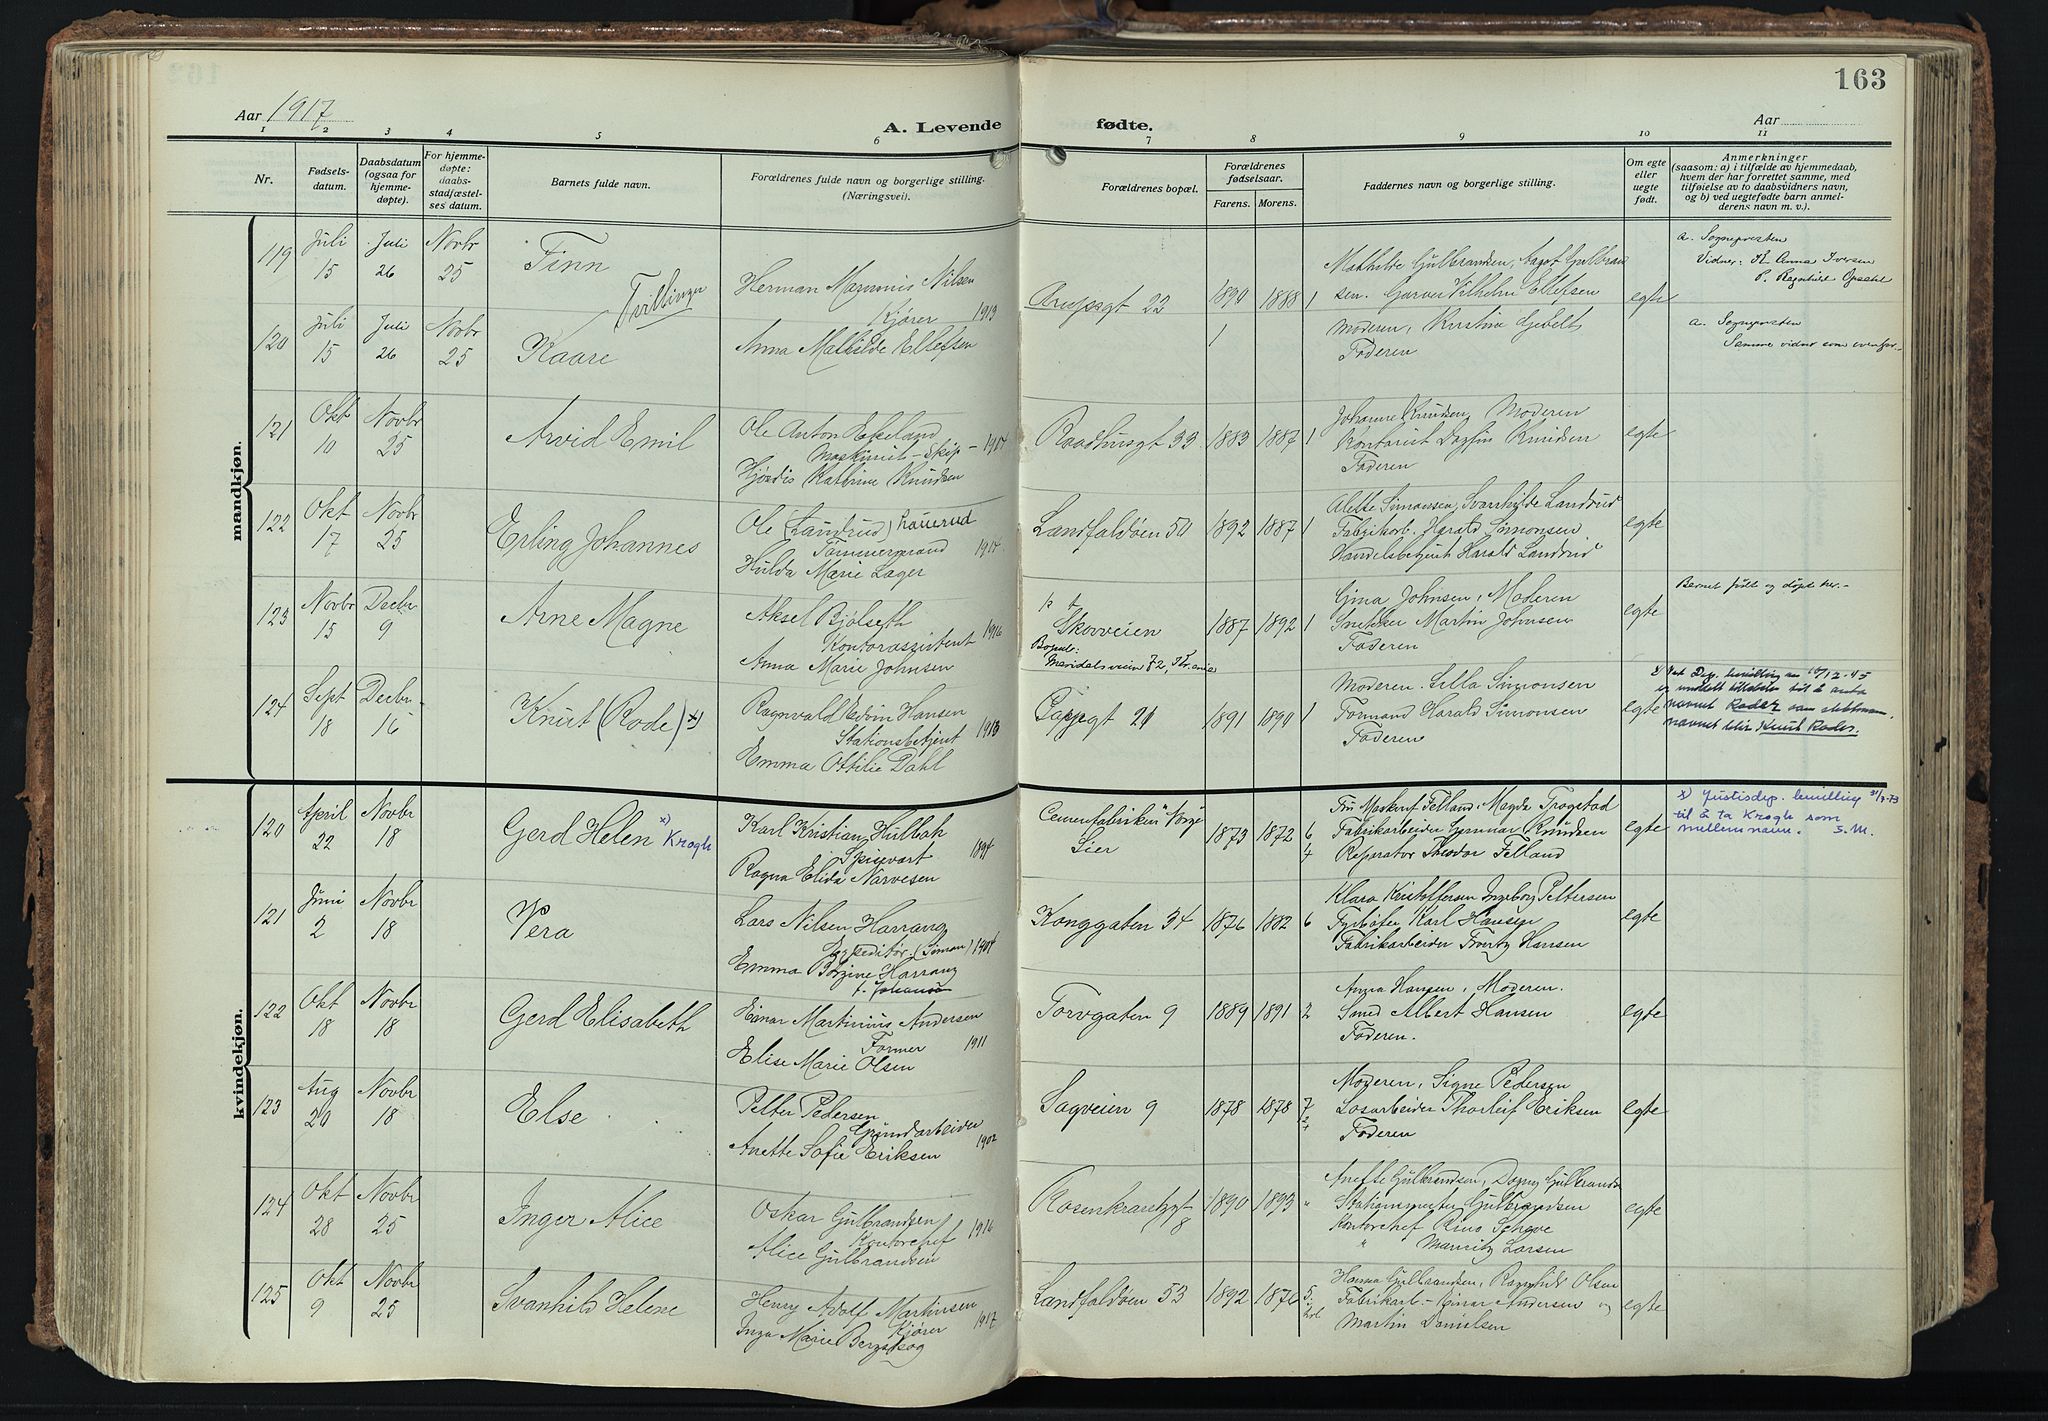 163
Aar 1917
A. Levende fødte.
Aar
1 2 3 4 5 6 7 8 9 10 11
Nr.
Fødsels-
datum.
Daabsdatum
(ogsaa for
hjemme-
døpte).
For hjemme-
døpte:
daabs-
stadfæstel-
ses datum.
Barnets fulde navn.
Forældrenes fulde navn og borgerlige stilling.
(Næringsvei).
Forældrenes bopæl.
Forældrenes
fødselsaar.
Farens. Morens.
Faddernes navn og borgerlige stilling.
Om egte
eller
uegte
født.
Anmerkninger
(saasom: a) i tilfælde av hjemmedaab,
hvem der har forrettet samme, med
tilføielse av to daabsvidners navn,
og b) ved uegtefødte barn anmel-
derens navn m. v.).
mandkjøn.
119
Juli
15
Juli
26
Novbr
25
Finn
Tvillinger
Herman Magnus Nilsen
Kjører 1913
22
1890 1888 1
Mathilde Gulbrandsen, Aagot Gulbran
sen. Garver Vilhelm Ellefsen
egte
a. Sognepresten
Vidner: Anna Iversen
Ragnhild Opsahl
120
Juli
15
Juli
26
Novbr
25
Kaare
Anna Mathilde Ellefsen
Moderen, Kristine
Faderen
a. Sognepresten
Samme vidner som ovenfor.
121
Okt
10
Novbr
25
Arvid Emil
Ole Anton Ekeland
Maskinist - Skip - 1914
Hjørdis Kathrine Knudsen
Raadhusgt 33
1883 1887 1
Johanne Knudsen, Moderen
Kontorist Dagfin Knudsen
Faderen
egte
122
Okt
17
Novbr
25
Erling Johannes
Ole (Landrud) Lauerud
Tømmermand 1914
Hulda Marie Lager
Landfaldøen 50
1892 1887 1
Alette Simonsen, Svanhilde Landrud
Fabrikarb. Harald Simonsen
Handelsbetjent Harald Landrud
egte
123
Novbr
15
Decbr
9
Arne Magne
Aksel Bjølseth
Kontorassistent 1916
Anna Marie Johnsen
p t
Skovveien
Bopæl:
Maridalsveien 72, Kr.ania
1887 1892 1
Gina Johnsen, Moderen
Snekker Martin Johnsen
Faderen
egte
Barnet født og døpt her.
124
Sept
18
Decbr
16
Knut (Rode) x)
Ragnvald Edvin Hansen
Stationsbetjent 1913
Emma Ottilie Dahl
Tappegt 21
1891 1890 1
Moderen. Lilla Simonsen
Formand Harald Simonsen
Faderen
egte
x) Ved Dep. bevilling av 10/12-45
er meddelt tillatelse til å anta
navnet Rodez som slektsnavn.
navnet blir Knut Rodes.
kvindekjøn.
120
April
22
Novbr
18
Gerd Helen x) Krogh
Karl Kristian Hulbak
Spisevert 1894
Ragna Elida Narvesen
Cementfabriken "Norge"
Lier
1873 1872 6
4
Fru Maskinist Felland, Magda Trogstad
Fabrikarbeider Gunnar Knudsen
Reparatør Theodor Felland
egte
x) Justisdep. bevilling 31/7-73
til å ta Krogh som
mellemnavn. S.M.
121
Juni
2
Novbr
18
Vera
Lars Nilsen Harrang
Expeditør (Tømm) 1904
Emma Borgine Harrang
f. Johansen
Konggaten 34
1876 1882 6
Klara Kristoffersen Ingeborg Pettersen
Fyrbøter Karl Hansen
Fabrikarbeider Frantz Hansen
egte
122
Okt
18
Novbr
18
Gerd Elisabeth
Einar Martinius Andersen
Former 1911
Elise Marie Olsen
Torvgaten 9
1889 1891 2
Anna Hansen, Moderen.
Smed Albert Hansen
Faderen.
egte
123
Aug
20
Novbr
18
Else
Petter Pedersen
Grundarbeider
Anette Sofie Eriksen 1902
Sagveien 9
1878 1878 7
Moderen, Signe Pedersen
Losarbeider Thorleif Eriksen
Faderen
egte
124
Okt
28
Novbr
25
Inger Alice
Oskar Gulbrandsen
Kontorchef 1916
Alice Gulbrandsen
Rosenkrantzgt
8
1890 1893 "
Anette Gulbrandsen, Dagny Gulbrands
Stationsmester Gulbrandsen
Kontorchef
" Mauritz Larsen
egte
125
Okt
9
Novbr
25
Svanhild Helene
Henry Adolf Martinsen
Kjører 1917
Inga Marie Bergskog
Landfaldøen 53
1892 1876 5
Hanna Gulbrandsen, Ragnhild Olsen
Fabrikarb. - Einar Andersen og
Martin Danielsen
egte